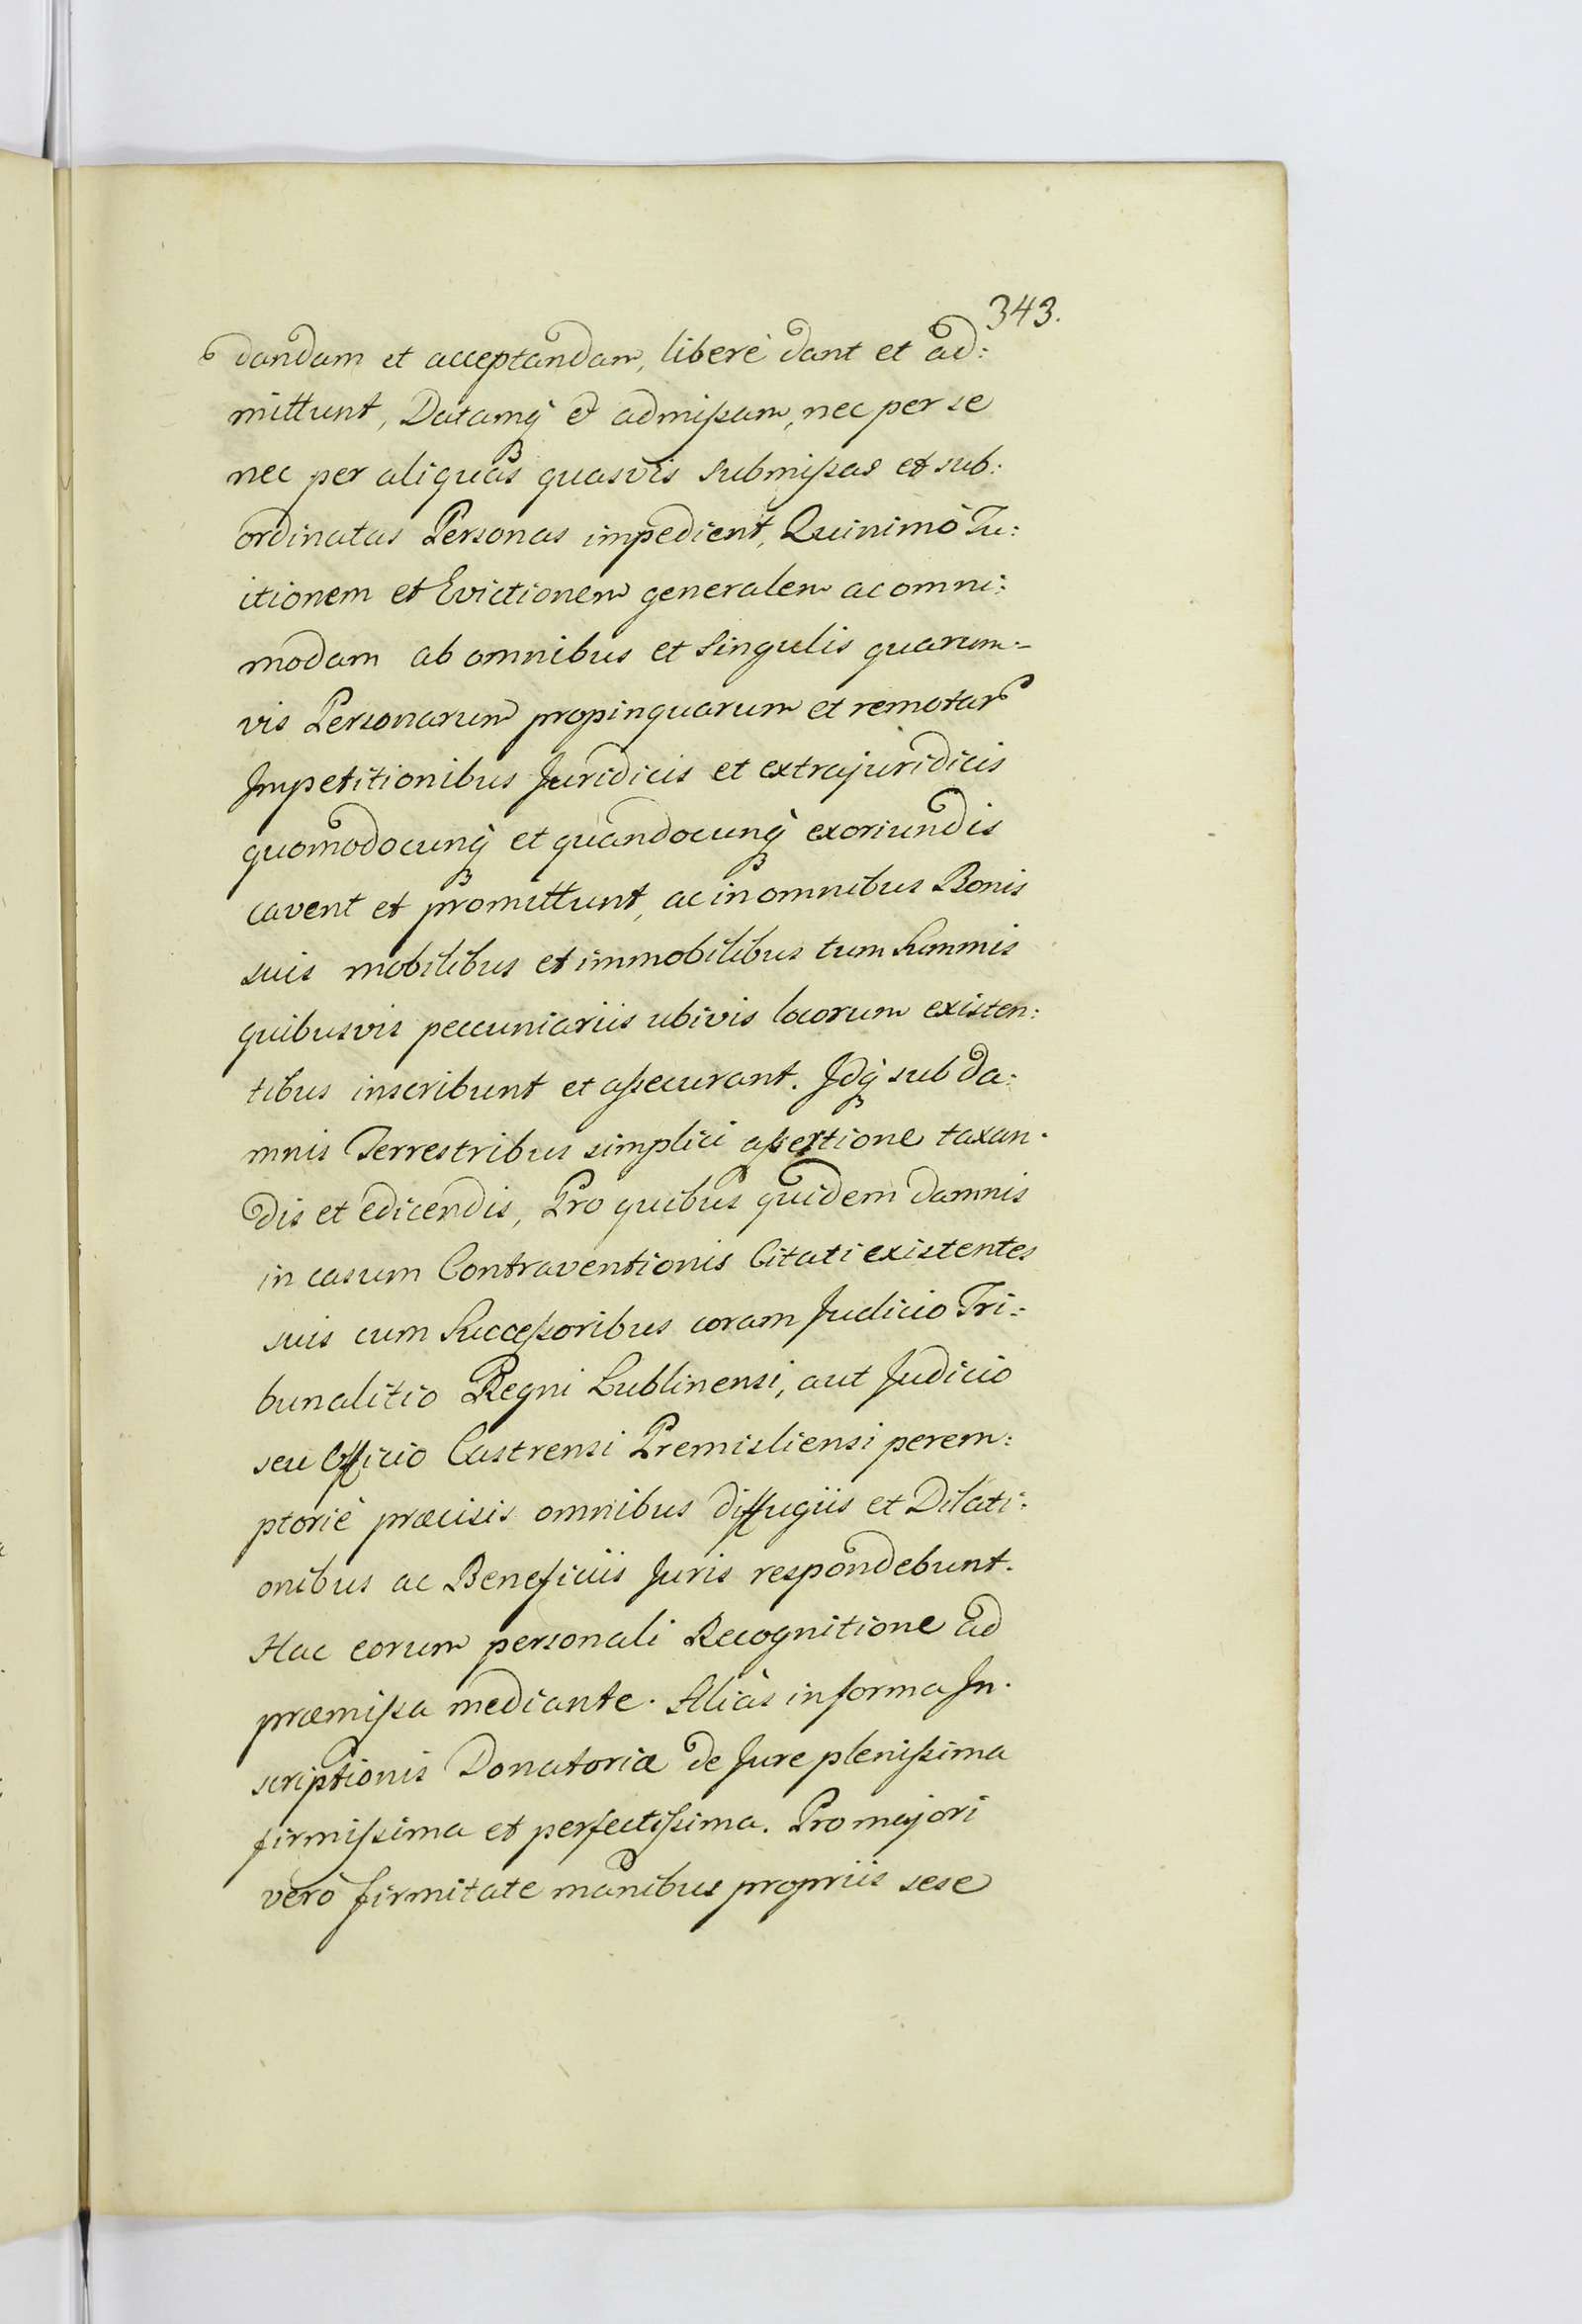 343.
dandam et acceptandam, liberè dant et ad:
mittunt, Datamq̃ et admißam, nec per se
nec per aliquas quasvis submißas et sub:
ordinatas Personas impedient, Quinimò Tu:
itionem et Evictionem generalem ac omni:
modam ab omnibus et singulis quarum:
vis Personarum propinquarum et remotar
Impetitionibus Juridicis et extrajuridicis
quomodocunq̃ et quandocunq̃ exoriundis
cavent et promittunt, ac in omnibus Bonis
suis mobilibus et immobilibus tum Summis
quibusvis peccuniariis ubivis locorum existen:
tibus inscribunt et aßecurant. Idq̃ sub da:
mnis Terrestribus simplici aßertione taxan:
dis et edicendis, Pro quibus quidem damnis
in casum Contraventionis Citati existentes
suis cum Succeßoribus coram Judicio Tri:
bunalitio Regni Lublinensi, aut Judicio
seu Officio Castrensi Premisliensi perem:
ptoriè præcisis omnibus diffugiis et Dilati:
onibus ac Beneficiis Juris respondebunt.
Hac eorum personali Recognitione ad
præmißa mediante. Aliàs in forma In:
scriptionis Donatoriæ de Jure plenißima
firmißima et perfectißima. Pro majori
verò firmitate manibus propriis sese